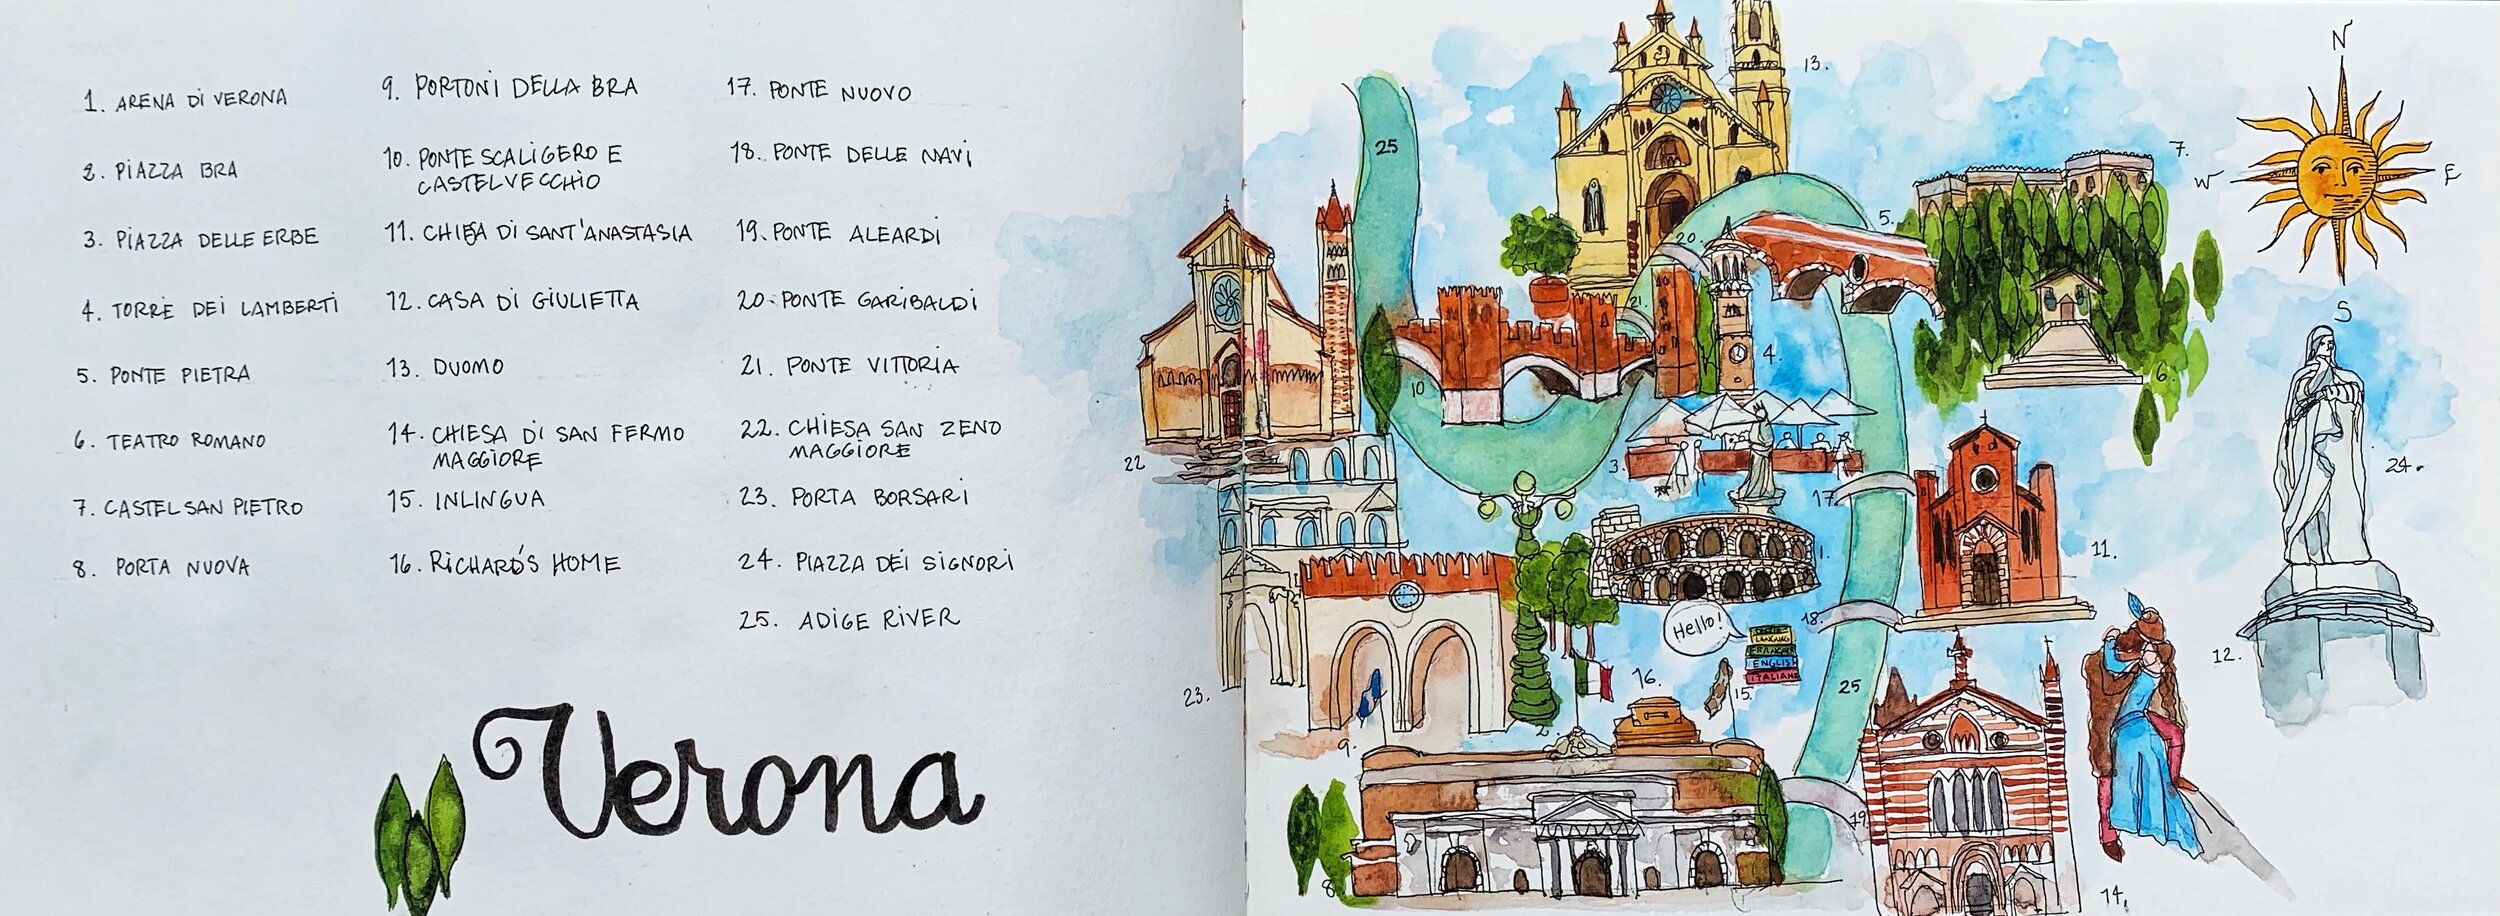 1. ARENA DI VERONA
2. PIAZZA BRA
3. PIAZZA DELLE ERBE
4. TORRE DEI LAMBERTI
5. PONTE PIETRA
6. TEATRO ROMANO
7. CASTEL SAN PIETRO
8. PORTA NUOVA
9. PORTONI DELLA BRA
10. PONTE SCALIGERO E
CASTELVECCHIO
11. CHIESA DI SANT'ANASTASIA
12. CASA DI GIULIETTA
13. DUOMO
14. CHIESA DI SAN FERMO
MAGGIORE
15. INLINGUA
16. RICHARD'S HOME
17. PONTE NUOVO
18. PONTE DELLE NAVI
19. PONTE ALEARDI
20. PONTE GARIBALDI
21. PONTE VITTORIA
22. CHIESA SAN ZENO
MAGGIORE
23. PORTA BORSARI
24. PIAZZA DEI SIGNORI
25. ADIGE RIVER
Verona
N
13.
25
7.
W
E
5.
20.
S
21.
4.
6.
10
22
3.
24.
17.
1.
11.
18.
Hello!
FRANCAIS
ENGLISH
ITALIANO
12.
16.
15.
25
23.
9.
19.
8
14.